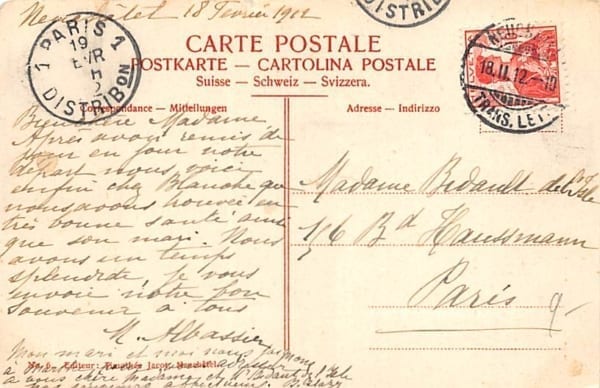 Neuchâtel 18 Février 1912
PARIS 1
19
DISTRIBON
DISTRIB
CARTE POSTALE
POSTKARTE — CARTOLINA POSTALE
Suisse — Schweiz — Svizzera.
HELVETIA
NEUCH
18.II.12.-10
TRANS. LET
Correspondance — Mitteilungen
Adresse — Indirizzo
Bien chère Madame
Après avoir remis de
jour en jour notre
départ nous voici
enfin chez Blanche que
nous avons trouvée en
très bonne santé ainsi
que son mari. Nous
avons un temps
splendide je vous
envoie notre bon
souvenir à tous
M. Albassier
Mon mari et moi nous
à
à vous chère Madame et
No. Editeur: Timothée Jacot, Neuchâtel
Madame Bedault de l'Isle
156 Bd Haussmann
Paris